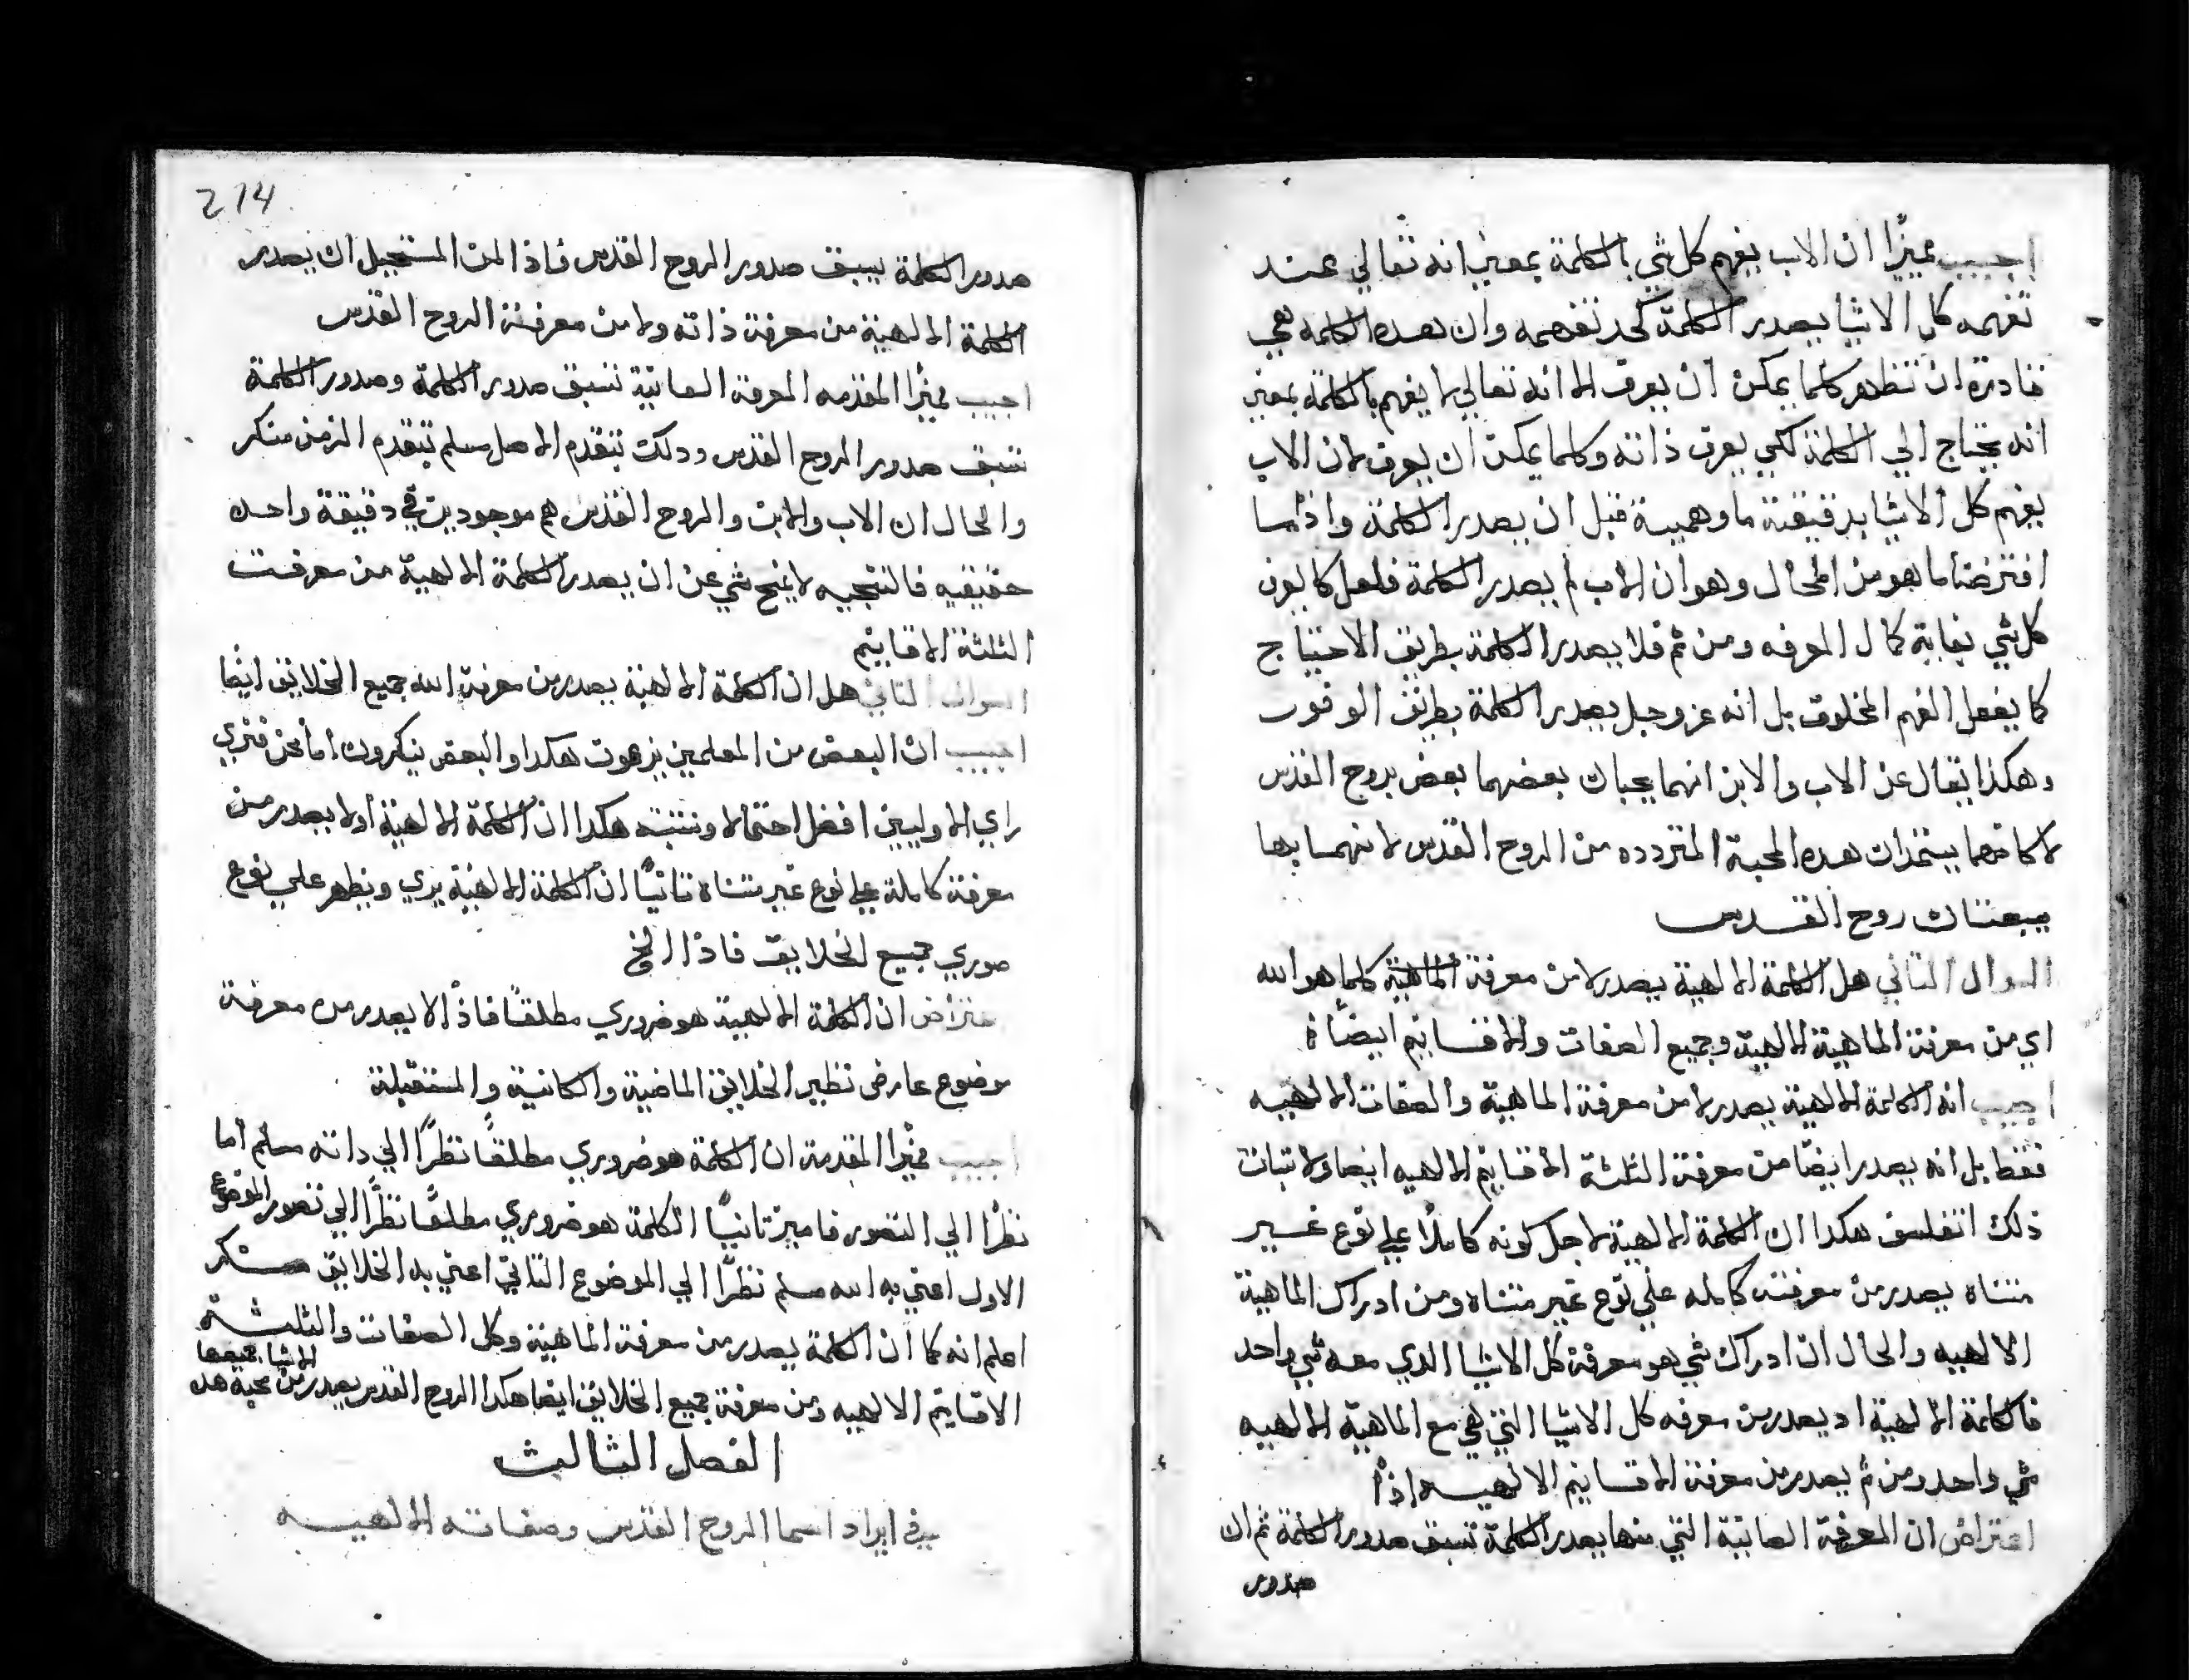 اجيب مميزًا ان الاب يفهم كل شي بالكلمة بمعني انه تعالي عند
تفهمه كل الاشيا يصدر الكلمة كحد تفهمه وان هده الكلمه هي
قادرة ان تظهر كلما يمكن ان يعرف الا انه تعالي لا يفهم بالكلمة بمعني
انه يحتاج الي الكلمة لكي يعرف ذاته وكلما يمكن ان يعرف لان الاب
يفهم كل الاشيا بدقيقة ما وهمية قبل ان يصدر الكلمة واذا ما
افترضنا ما هو من المحال وهو ان الاب لم يصدر الكلمة فلعل كان يعرف
كل شي بغاية كمال المعرفه ومن ثم فلا يصدر الكلمة بطريق الاحتياج
كما يفعل الفهم المخلوق بل انه عز وجل يصدر الكلمة بطريق الوفور
وهكذا يقال عن الاب والابن انهما يحبان بعضهما بعض بروح القدس
لا كانهما يستمدان هده المحبة المترددہ من الروح القدس لانهما بها
يبعثان روح القدس
السوال التاني هل الكلمة الالهية يصدر لا من معرفة الماهية كلما هو الله
اي من معرفة الماهية الالهية وجميع الصفات والاقانيم ايضًا ة
اجيب انه الكلمة الالهية يصدر لا من معرفة الماهية والصفات الالهيه
فقط بل انه يصدر ايضًا من معرفة الثلثة الاقانيم الالهيه ايضا ولاتبات
ذلك اتفلسف هكدا ان الكلمة الالهية لاجل كونه كاملاً علي نوع غير
متناه يصدر من معرفة كامله علي نوع غير متناه ومن ادراك الماهية
الالهيه والحال ان ادراك شي هو معرفة كل الاشيا الدي معه شي واحد
فالكلمة الالهية اد يصدر من معرفه كل الاشيا التي هي مع الماهية الالهيه
شي واحد ومن ثم يصدر من معرفة الاقانيم الالهيه اذًا
اعتراض ان المعرفة الصانية التي منها يصدر الكلمة تسبق صدور الكلمة ثم ان
صدور
214
صدور الكلمة يسبق صدور الروح القدس فاذا لمن المستحيل ان يصدر
الكلمة الالهية من معرفة ذاته ولا من معرفة الروح القدس
اجيب مميزًا المقدمه المعرفة الصانية تسبق صدور الكلمة وصدور الكلمة
تسبق صدور الروح القدس ودلك بتقدم الاصل مسلم بتقدم الزمن منكر
والحال ان الاب والابن والروح القدس هم موجودين في دقيقة واحده
حقيقيه فالنتيجيه لا يمنع شي عن ان يصدر الكلمة الالهية من معرفت
الثلثة الاقانيم
السوال التاني هل ان الكلمة الالهية يصدر من معرفة الله جميع الخلايق ايضا
اجيب ان البعض من المعلمين يزعموت هكدا والبعض ينكرون اما نحن فنري
راي الاوليين افضل احتمالا ونثبته هكدا ان الكلمة الالهية اولا يصدر من
معرفة كاملة علي نوع غير متناه تانيًا ان الكلمة الالهية يري ويظهر علي نوع
صوري جميع الخلايق فاذا الخ
عتراض ان الكلمة الالهية هو ضروري مطلقًا فاذًا لا يصدر من معرفة
موضوع عارض نظير الخلايق الماضية والكاينة والمستقبلة
اجيب مميزا المقدمة ان الكلمة هو ضروري مطلقًا نظرًا الي داته مسلم اما
نظرًا الي التصور فاميز تانيًا الكلمة هو ضروري مطلقًا نظرًا الي تصور الموضوع
الاول اعني به الله مسلم نظرًا الي الموضوع التاني اعني به الخلايق منكر
اعلم انه كما ان الكلمة يصدر من معرفة الماهية وكل الصفات والثلثة
الاقانيم الالهيه ومن معرفة جميع الخلايق ايضا هكدا الروح القدس يصدر من محبة هده
الاشيا جميعها
الفصل الثالث
في ايراد اسما الروح القدس وصفاته الالهيه